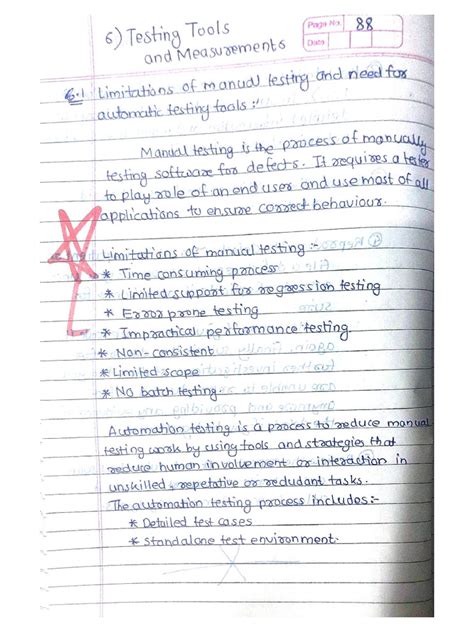 6) Testing Tools
and Measurements
Page No. 88
Date
6.1 Limitations of manual testing and need for
automatic testing tools :-
Manual testing is the process of manually
testing software for defects. It requires a tester
to play role of an end user and use most of all
applications to ensure correct behaviour.
Limitations of manual testing :-
* Time consuming process
* Limited support for regression testing
* Error prone testing
* Impractical performance testing
* Non-consistent
* Limited scope
* No batch testing
Automation testing is a process to reduce manual
testing work by using tools and strategies that
reduce human involvement or interaction in
unskilled, repetative or redudant tasks.
The automation testing process includes:-
* Detailed test cases
* Standalone test environment.